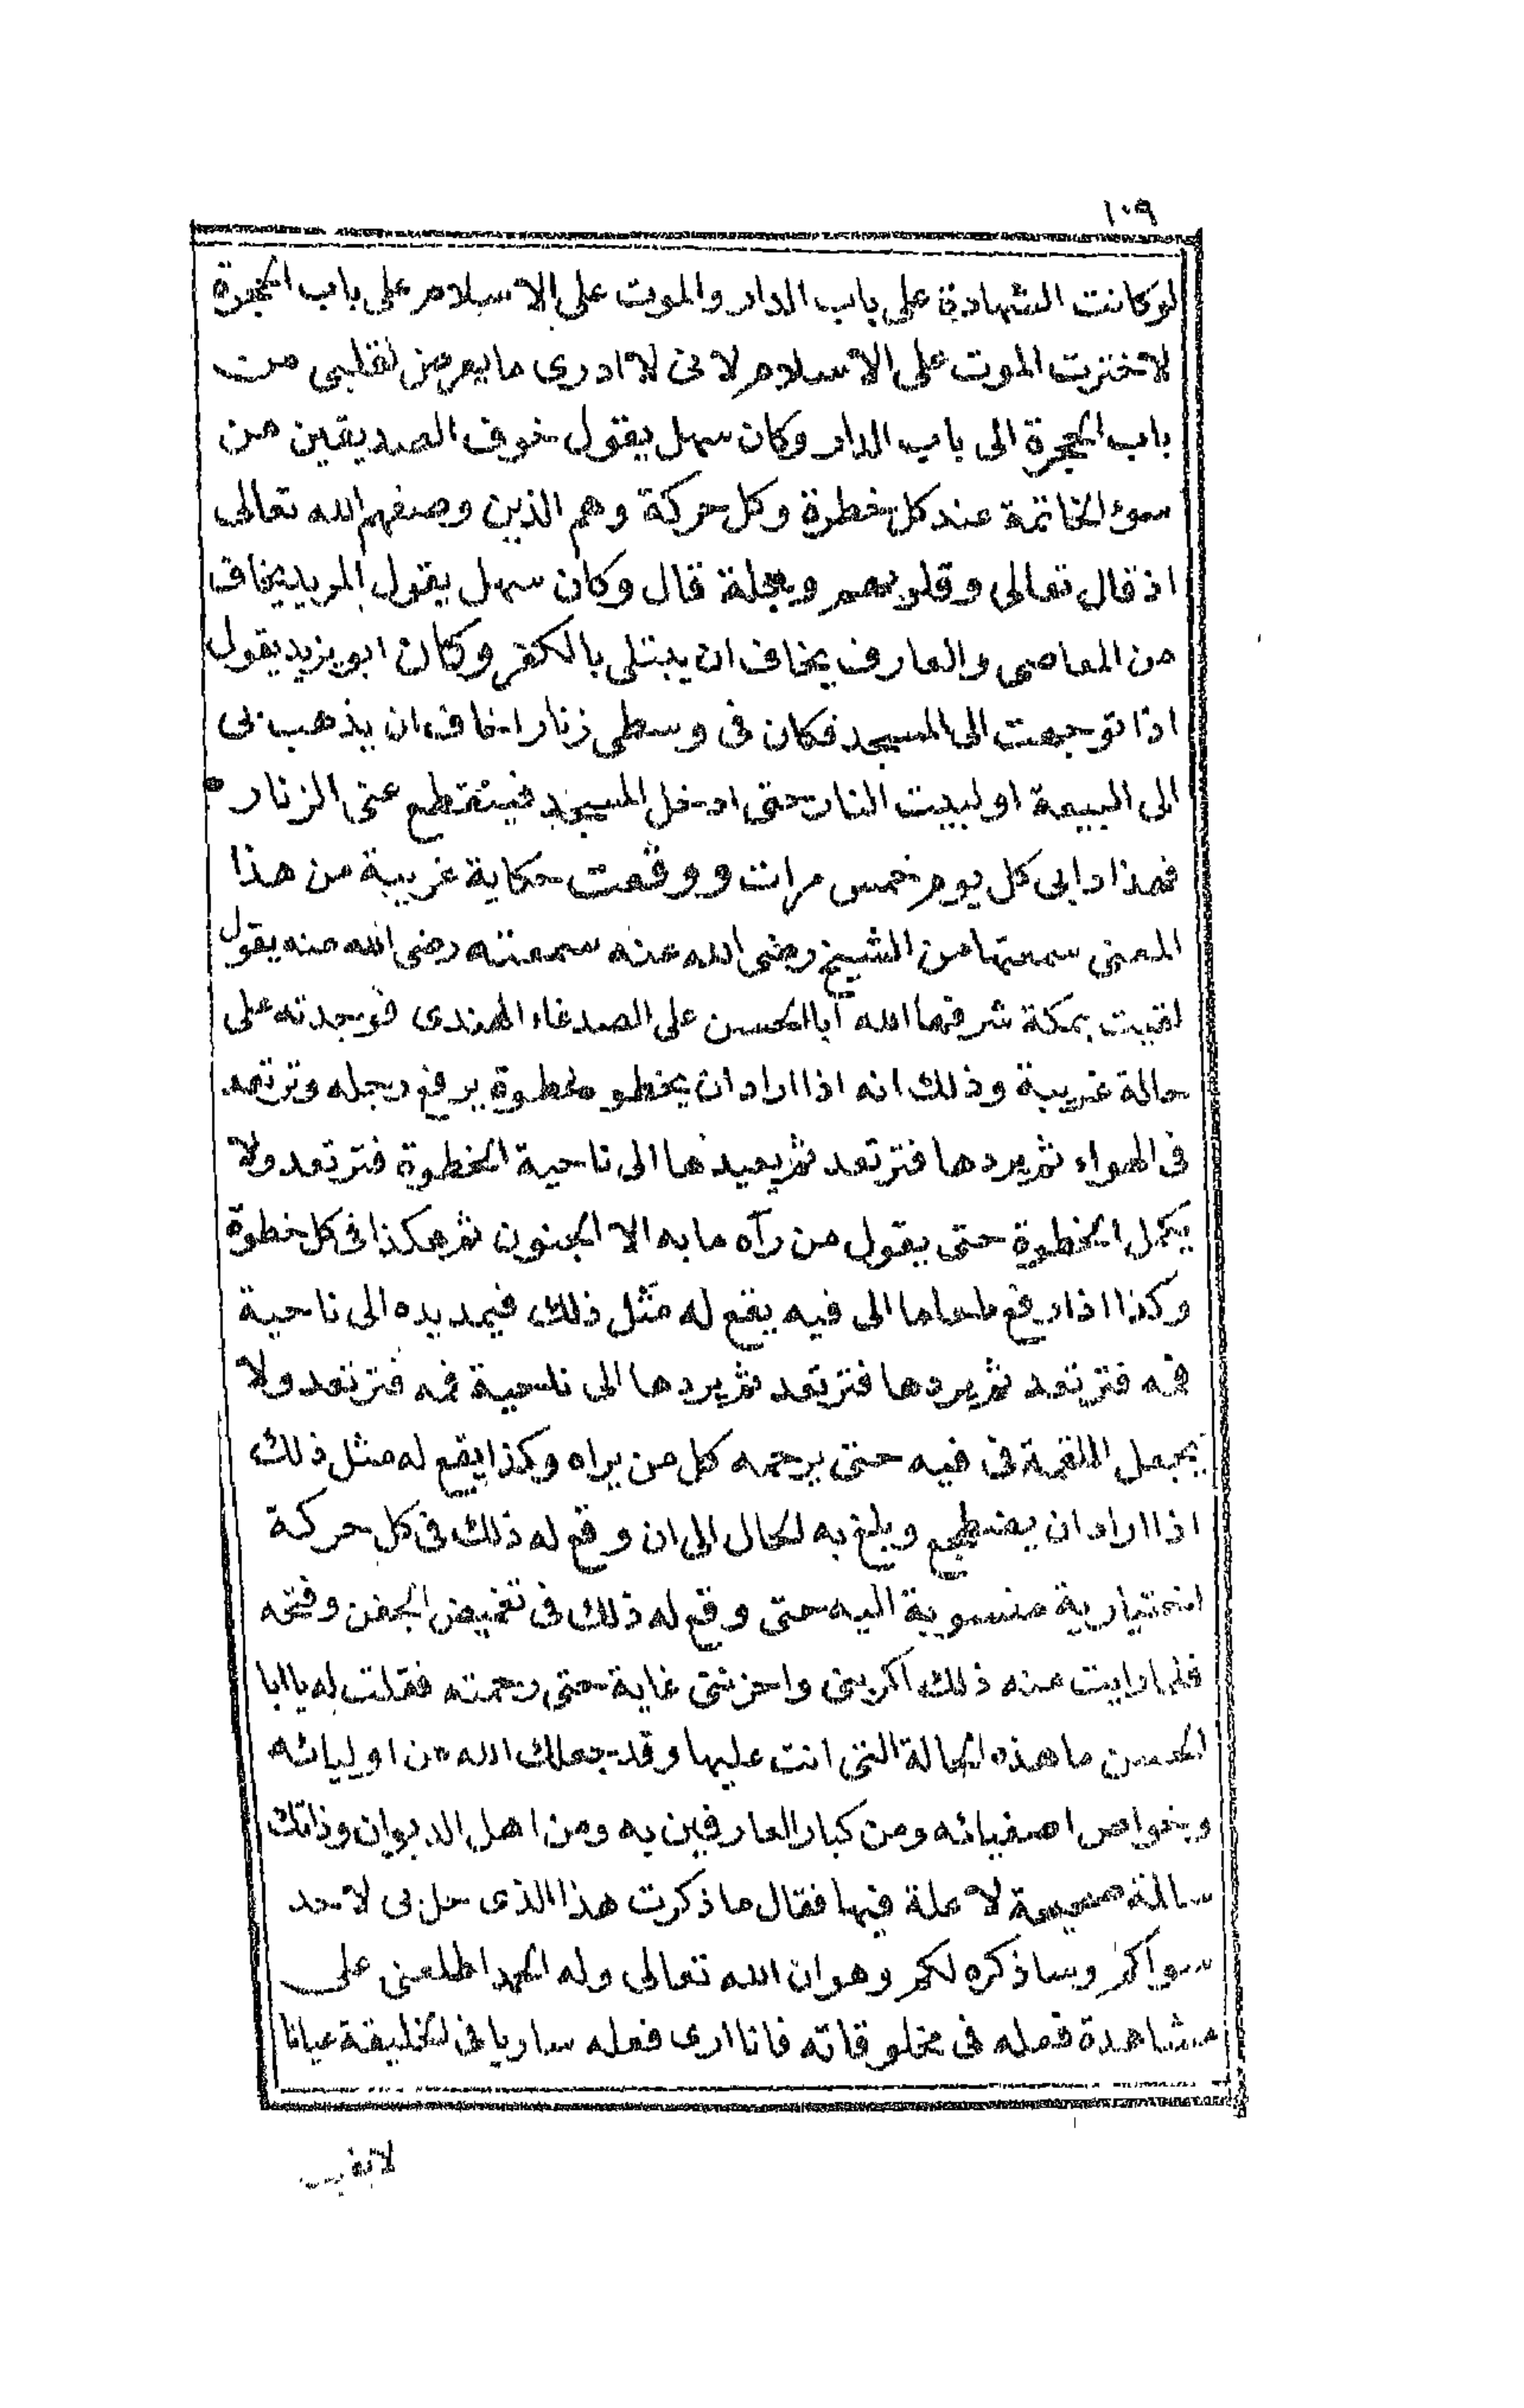 ١٠٩
لوكانت الشهادة على باب الدار والموت على الاسلام على باب الحجرة
لاخترت الموت على الاسلام لانى لا ادرى ما يعرض لقلبى من
باب الحجرة الى باب الدار وكان سهل يقول خوف الصديقين من
سوء الخاتمة عند كل خطرة وكل حركة وهم الذين وصفهم الله تعالى
اذ قال تعالى وقلوبهم وجلة قال وكان سهل يقول المريد يخاف
من المعاصى والعارف يخاف ان يبتلى بالكفر وكان ابو يزيد يقول
اذا توجهت الى المسجد فكان فى وسطى زنار اخاف ان يذهب بى
الى البيعة او لبيت النار حتى ادخل المسجد فينقطع عنى الزنار
فهذا دابى كل يوم خمس مرات ووقعت حكاية غريبة من هذا
المعنى سمعتها من الشيخ رضى الله عنه سمعته رضى الله عنه يقول
لقيت بمكة شرفها الله أبا الحسن على الصدغاء الهندى فوجدته على
حالة غريبة وذلك انه اذا اراد ان يخطو خطوة يرفع رجله وترتعد
فى الهواء ثم يردها فترتعد ثم يعيدها الى ناحية الخطوة فترتعد ولا
يكمل الخطوة حتى يقول من رآه ما به الا الجنون ثم هكذا فى كل خطوة
وكذا اذا رفع طعاما الى فيه يقع له مثل ذلك فيمد يده الى ناحية
فمه فترتعد ثم يردها فترتعد ثم يردها الى ناحية فمه فترتعد ولا
يجعل اللقمة فى فيه حتى يرحمه كل من يراه وكذا يقع له مثل ذلك
اذا اراد ان يضطجع وبلغ به الحال الى ان وقع له ذلك فى كل حركة
اختيارية منسوبة اليه حتى وقع له ذلك فى تغميض الجفن وفتحه
فلما رايت منه ذلك اكربنى واحزننى غاية حتى رحمته فقلت له يا ابا
الحسن ما هذه الحالة التى انت عليها وقد جعلك الله من اوليائه
وخواص اصفيائه ومن كبار العارفين به ومن اهل الديوان وذاتك
سالمة صحيحة لا علة فيها فقال ما ذكرت هذا الذى حل بى لاحد
سواكم وساذكره لكم وهو ان الله تعالى وله الحمد اطلعنى على
مشاهدة فعله فى مخلوقاته فانا ارى فعله ساريا فى الخليقة عيانا